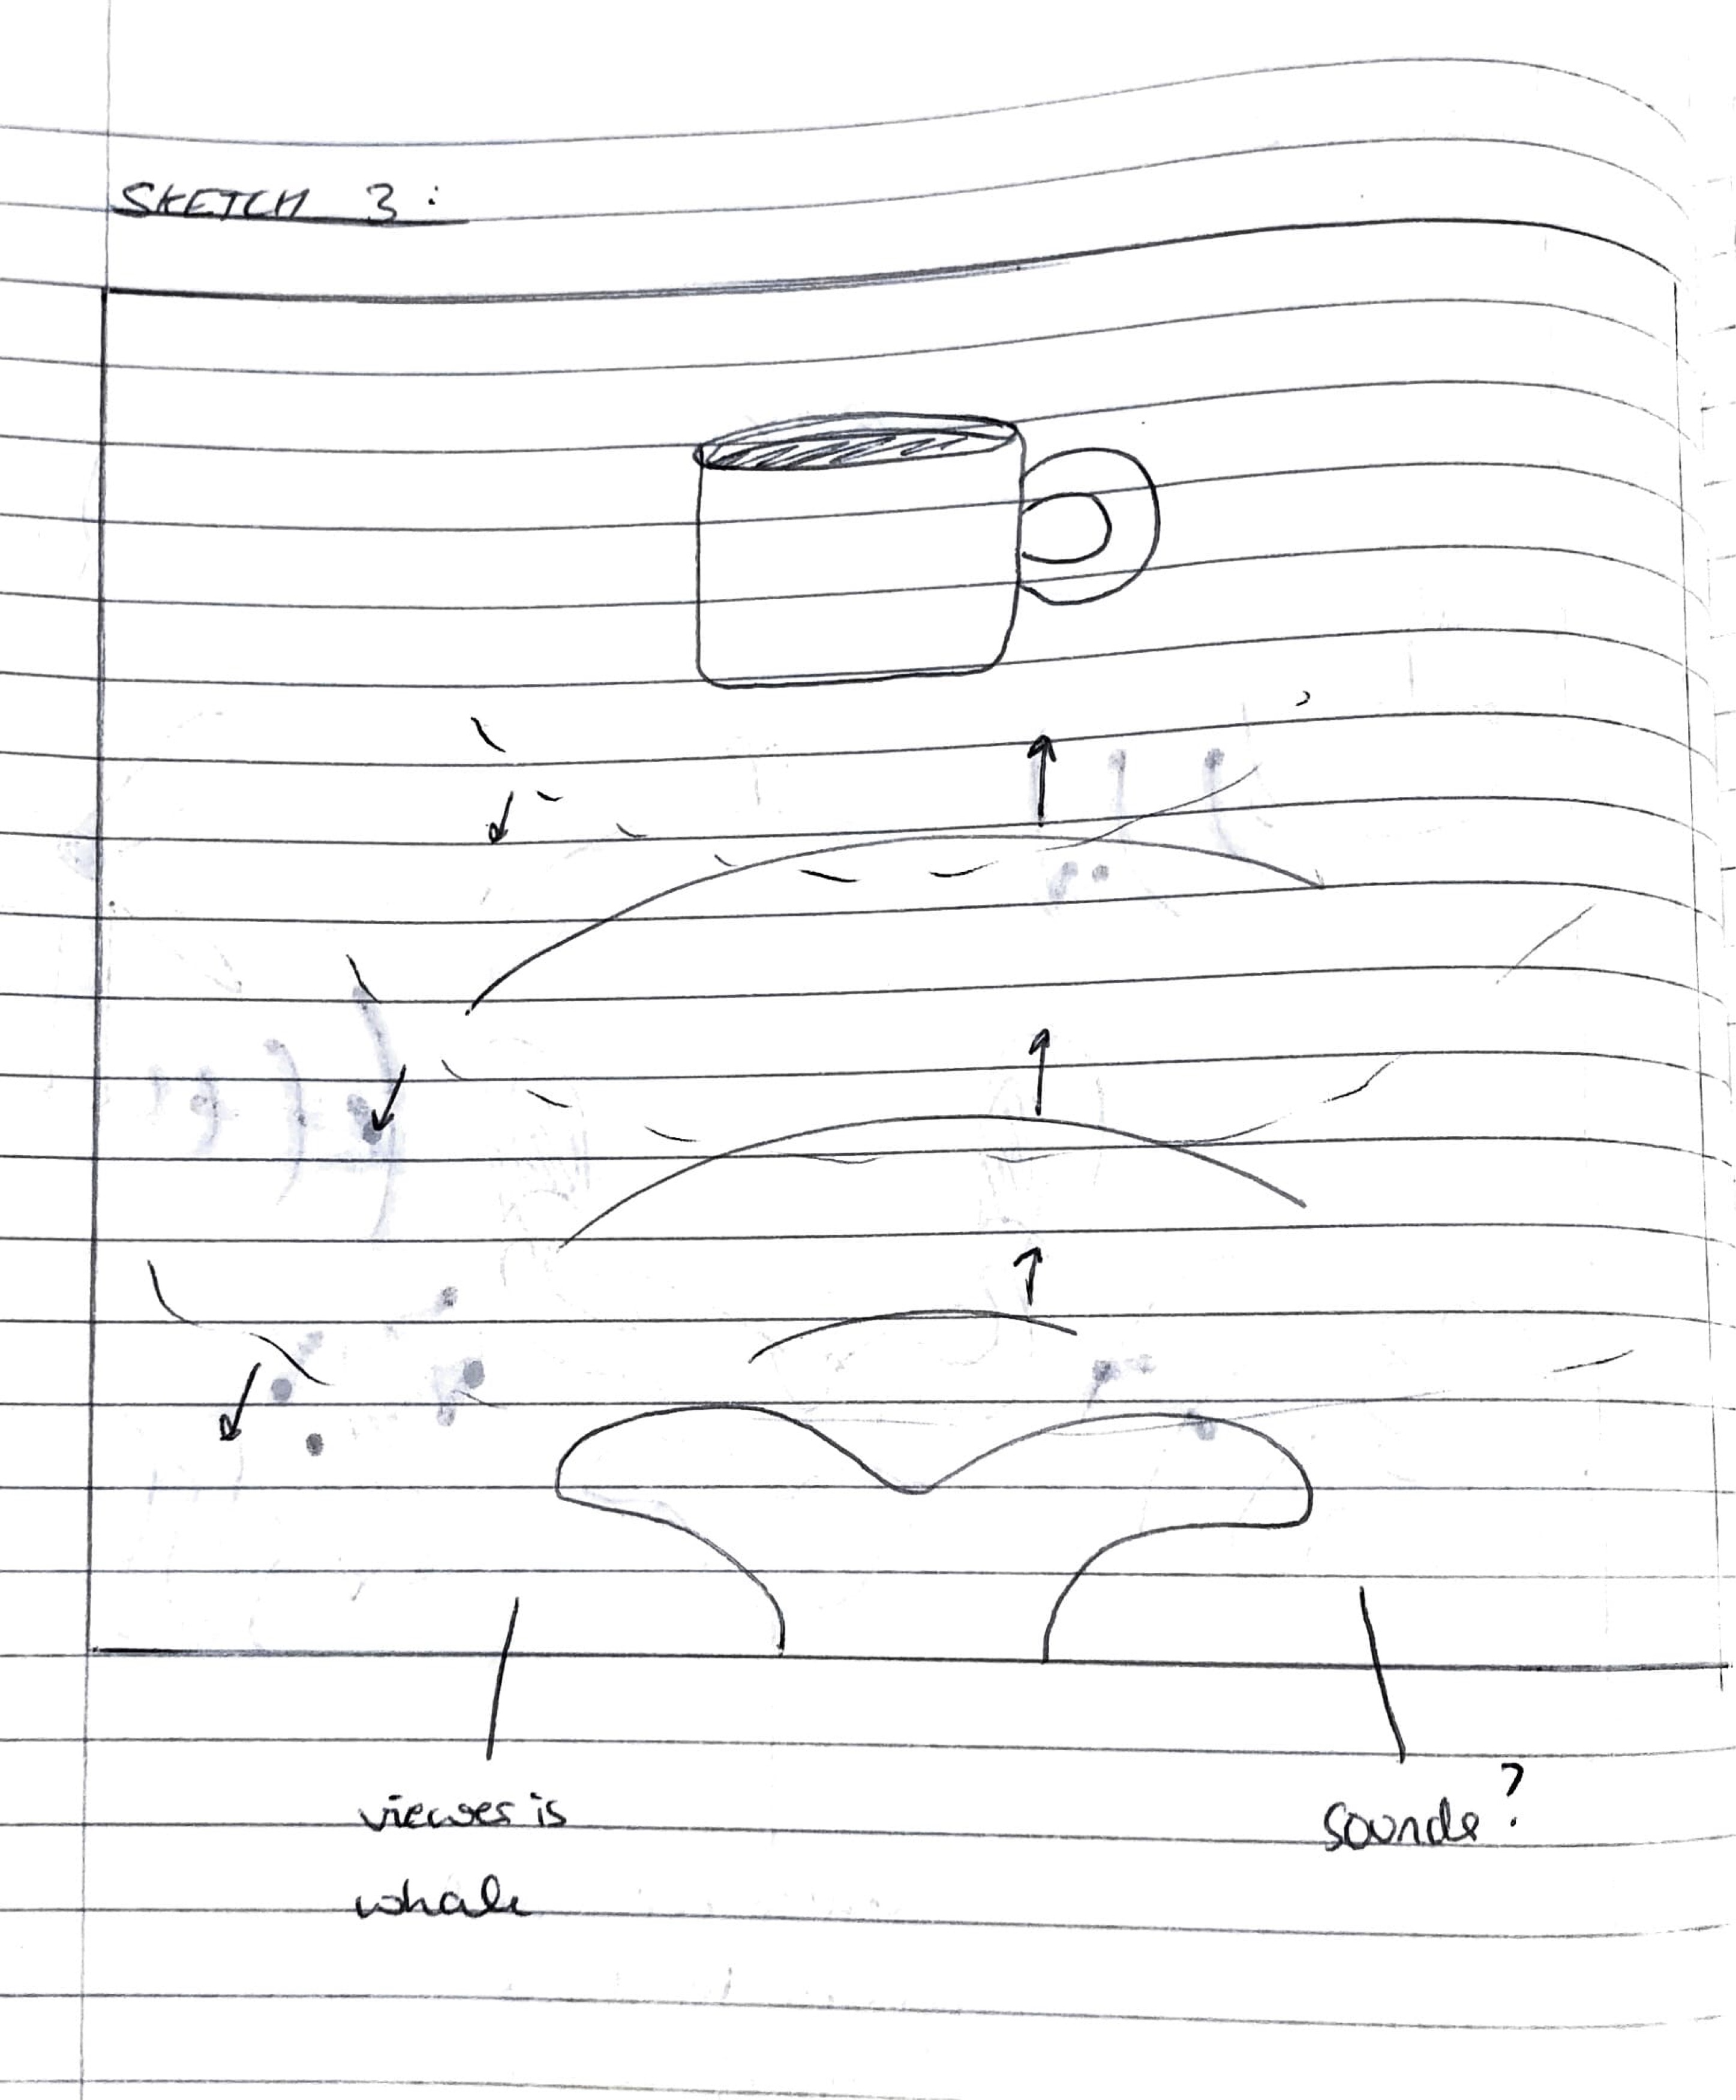 SKETCH 3:
viewer is
whale
sounds?